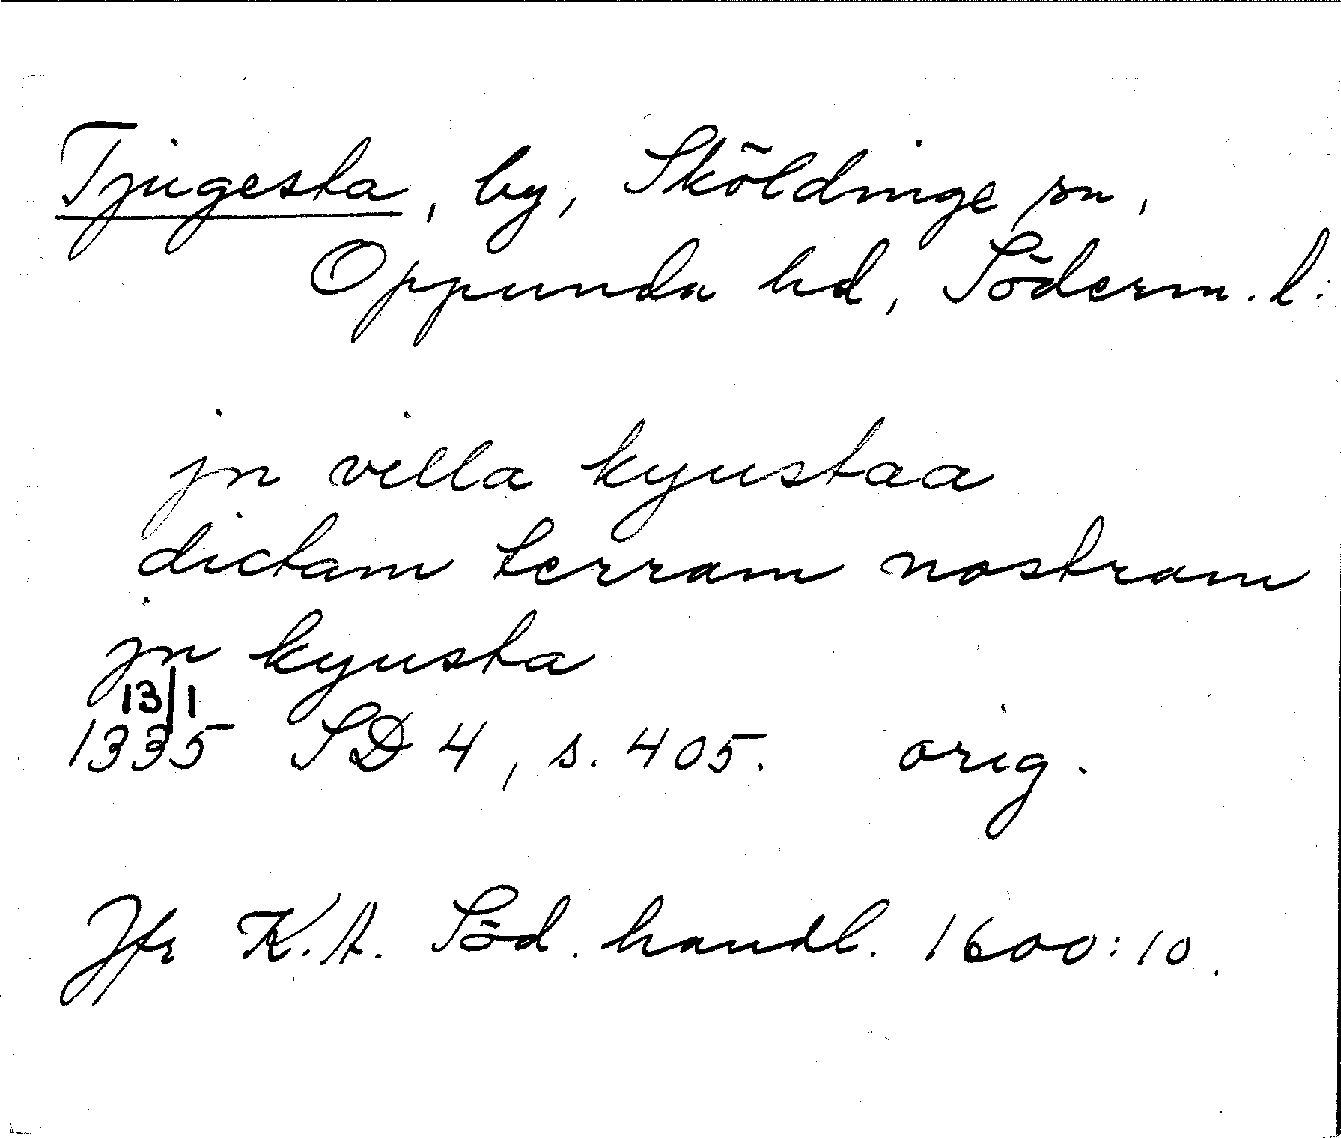 Tjugesta, by, Sköldinge sn,
Oppunda hd, Söderm. l.
jn villa kyustaa
dictam terram nostram
jn kyusta
13/1
1335 SD 4, s. 405. orig.
Jfr K.A. Söd. handl. 1600:10.